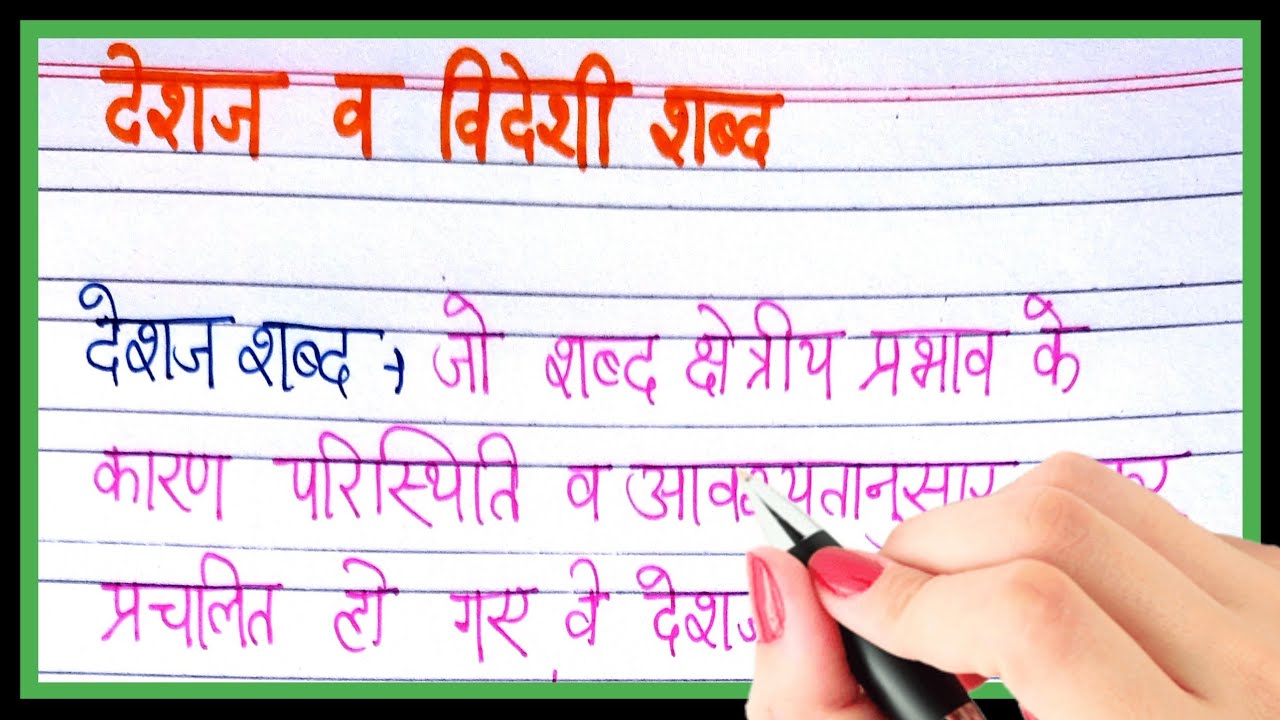 देशज व विदेशी शब्द
देशज शब्द → जो शब्द क्षेत्रीय प्रभाव के
कारण परिस्थिति व आवश्यतानुसार
प्रचलित हो गए, वे देशज